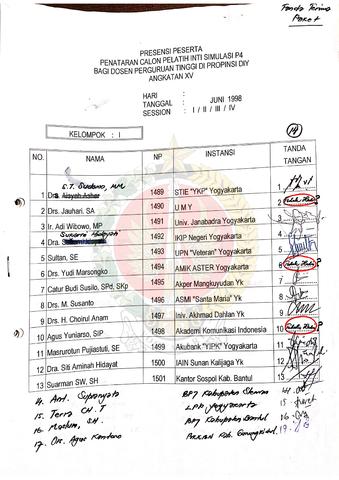 Tanda Terima
Paket
PRESENSI PESERTA
PENATARAN CALON PELATIH INTI SIMULASI P4
BAGI DOSEN PERGURUAN TINGGI DI PROPINSI DIY
ANGKATAN XV
HARI :
TANGGAL : JUNI 1998
SESSION : I / II / III / IV
KELOMPOK : I
14
NO. NAMA NP INSTANSI TANDA TANGAN
S.T. Sudarso, MM
1 Drs. Aisyah Asher 1489 STIE "YKP" Yogyakarta 1
2 Drs. Jauhari, SA 1490 U M Y 2 Tidak Hadir ?
3 Ir. Adi Wibowo, MP 1491 Univ. Janabadra Yogyakarta 3
4 Dra. 1492 IKIP Negeri Yogyakarta 4
5 Sultan, SE 1493 UPN "Veteran" Yogyakarta 5
6 Drs. Yudi Marsongko 1494 AMIK ASTER Yogyakarta 6 Tidak Hadir ?
7 Catur Budi Susilo, SPd, SKp 1495 Akper Mangkuyudan Yk 7
8 Drs. M. Susanto 1496 ASMI "Santa Maria" Yk 8
9 Drs. H. Choirul Anam 1497 Univ. Akhmad Dahlan Yk 9
10 Agus Yuniarso, SIP 1498 Akademi Komunikasi Indonesia 10 Tidak Hadir ?
11 Masrurotun Pujiastuti, SE 1499 Akubank "YIPK" Yogyakarta 11
12 Dra. Siti Aminah Hidayat 1500 IAIN Sunan Kalijaga Yk 12
13 Suarman SW, SH 1501 Kantor Sospol Kab. Bantul 13
14. Ant. Supriyoto BP7 Kabupaten Sleman 14
15. Terra CN. T LPP Yogyakarta 15
16 Maslum, SH. BP7 Kabupaten Bantul 16
17. Drs. Agus Kantono Kab. Gunungkidul 17